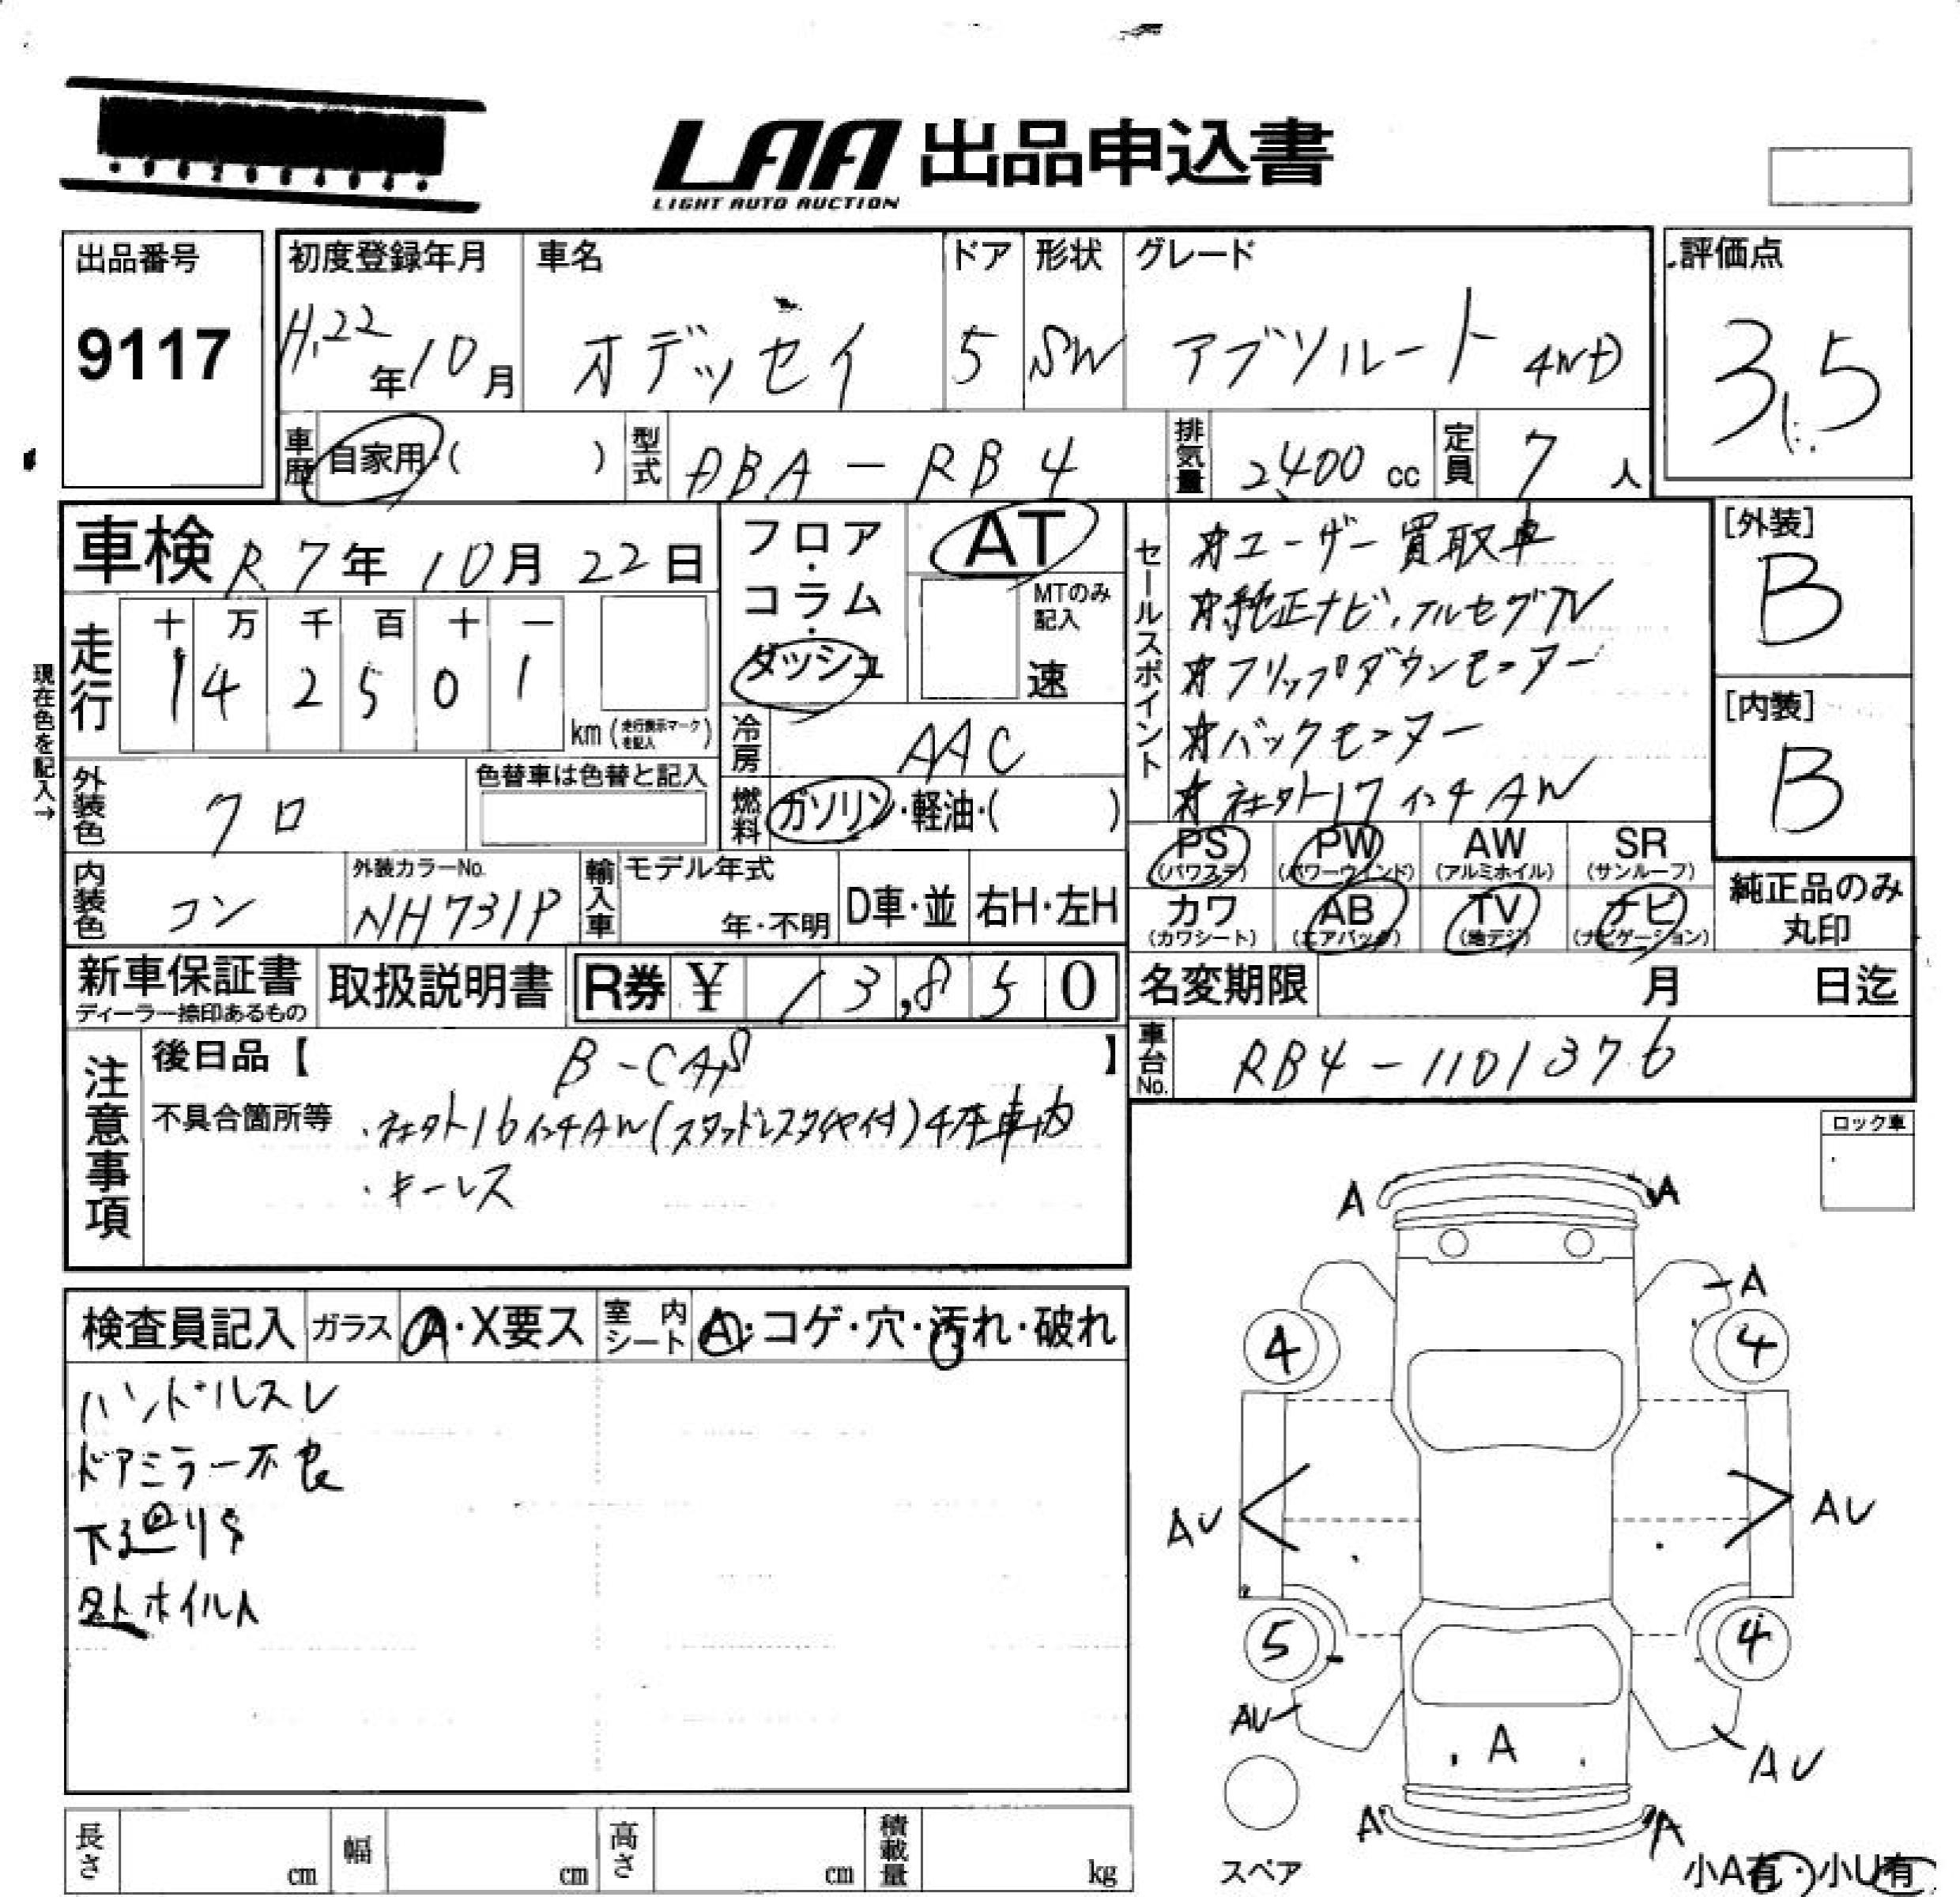 LAA 出品申込書
LIGHT AUTO AUCTION
出品番号
9117
初度登録年月
H.22年10月
車名
オデッセイ
ドア
5
形状
SW
グレード
アブソルート 4WD
評価点
3.5
車歴 自家用・( )
型式 DBA-RB4
排気量 2400 cc
定員 7 人
車検 R7年10月22日
走行
十 万 千 百 十 一
1 4 2 5 0 1
km (走行表示マークを記入)
現在色を記入→
フロア・コラム・ダッシュ
AT
MTのみ記入
速
冷房 AAC
燃料 ガソリン・軽油・( )
外装色 クロ
色替車は色替と記入
内装色 コン
外装カラーNo.
NH731P
輸入車
モデル年式
年・不明
D車・並
右H・左H
セールスポイント
☆ユーザー買取車
☆純正ナビ、フルセグTV
☆フリップダウンモニター
☆バックモニター
☆社外17インチAW
[外装]
B
[内装]
B
PS (パワステ)
PW (パワーウインド)
AW (アルミホイル)
SR (サンルーフ)
カワ (カワシート)
AB (エアバック)
TV (地デジ)
ナビ (ナビゲーション)
純正品のみ丸印
新車保証書
ディーラー捺印あるもの
取扱説明書
R券 ¥ 13,850
名変期限 月 日迄
車台No. RB4-1101376
注意事項
後日品【 B-CAS 】
不具合箇所等 ・社外16インチAW(スタッドレスタイヤ付)4本車内
・キーレス
ロック車
検査員記入
ガラス A・X要ス
室内シート A・コゲ・穴・汚れ・破れ
ハンドルスレ
ドアミラー不良
下廻りS
外ホイルA
A A
A
4 4
AU AU
5 4
AU AU
A
A A
スペア
小A有・小U有
長さ cm
幅 cm
高さ cm
積載量 kg